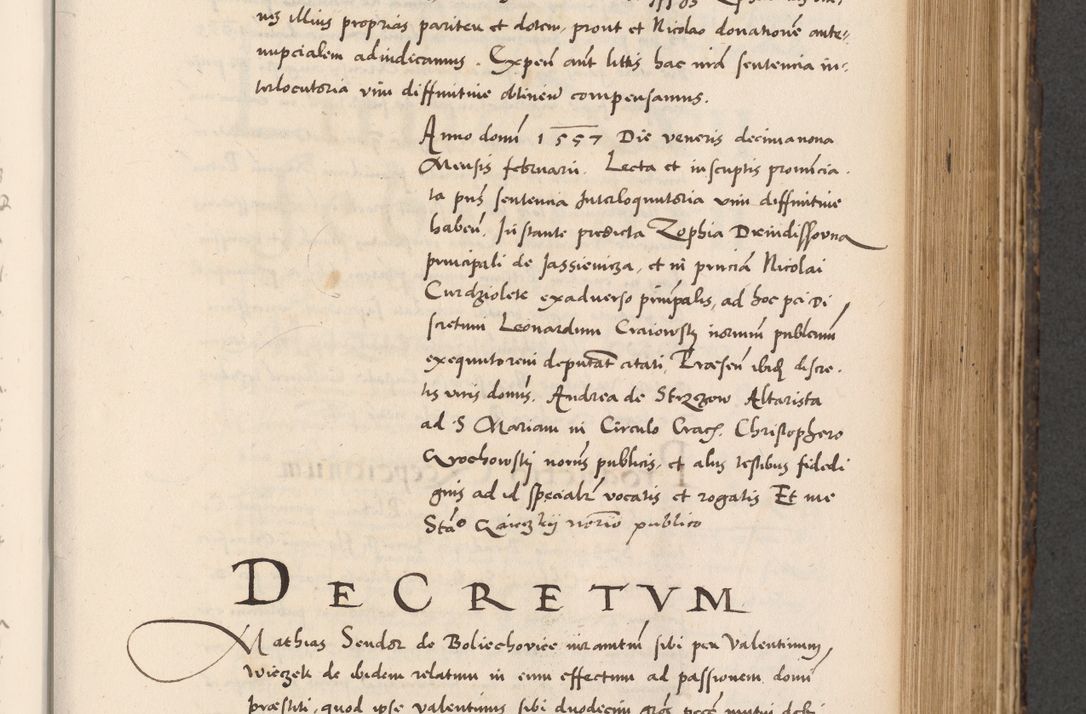 nis illius proprias pariter et dotem, prout et Nicolao donationē ante-
nupcialem adiudicamus. Expeñ aūt littis hac nrā sentencia in-
terlocutoria vim diffinitiue obtineñ compensamus.
Anno domī 1557 Die veneris decimanona
Mensis februarii. Lecta et in scriptis pronūcia.
ta pñs sentencia Interloquutoria vim diffinitiue
habeñ, Instante predicta Zophia
principali de Jassienicza, et in Nicolai
Curdziolete exaduerso prinpalis, ad hoc per Di
scretum Leonardum Craiowsky norium publicum
exequutorem deputat̄ citati, Præsen̄ ibid discre.
tis viris domis. Andrea de Strzegow Altarista
ad S Mariam in Circulo Crac. Christophero
norijs publicis, et alijs testibus fidedi
gnis ad id specialr̄ vocatis et rogatis Et me
Stāo notrio publico
DECRETVM
Mathias Sendor de Boliechovice iuramtm̄ sibi per Valentinum
Wieczek de ibidem relatum in eum effectum ad passionem domi
præstiti, quod ipse valentinus sibi duodecim gros